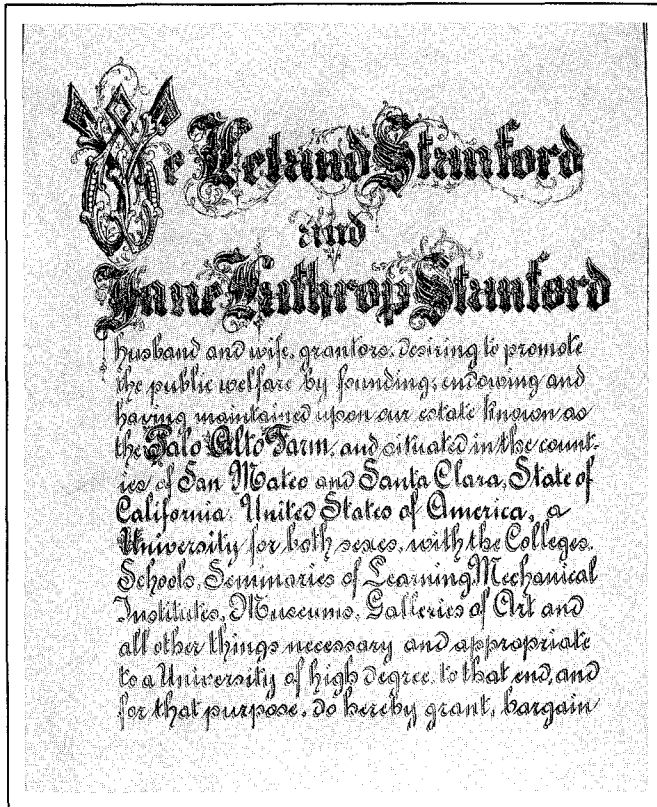 We Leland Stanford
and
Jane Lathrop Stanford
husband and wife, grantors, desiring to promote
the public welfare by founding, endowing and
having maintained upon our estate known as
the Palo Alto Farm, and situated in the count-
ies of San Mateo and Santa Clara, State of
California, United States of America, a
University for both sexes, with the Colleges,
Schools, Seminaries of Learning, Mechanical
Institutes, Museums, Galleries of Art and
all other things necessary and appropriate
to a University of high degree, to that end, and
for that purpose, do hereby grant, bargain